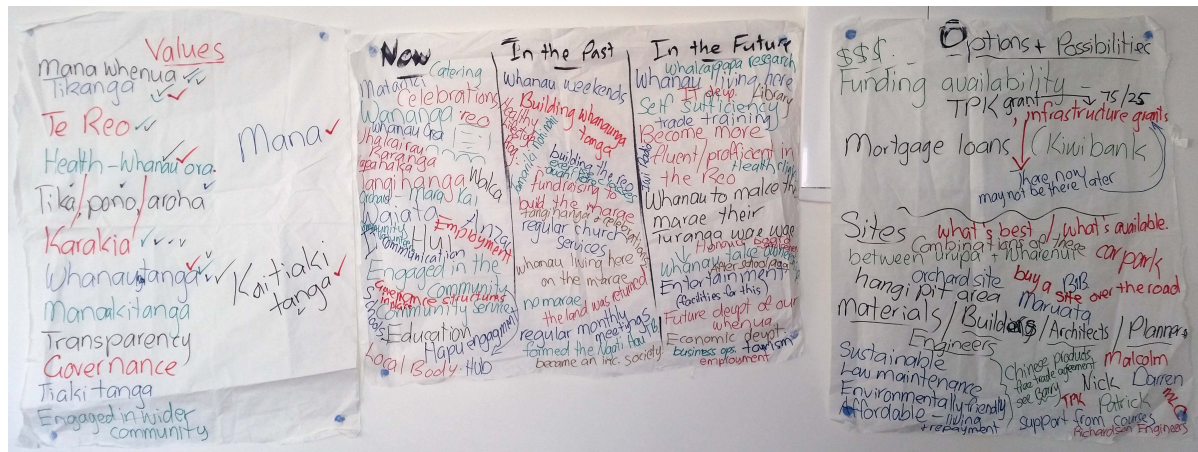 Values
Mana whenua
Tikanga
Te Reo
Health - Whanau ora.
Tika/pono/aroha
Karakia
Whanautanga
Manaakitanga
Transparency
Governance
Tiaki tanga
Engaged in wider
community
Mana
Kaitiaki
tanga
Now
Catering
Matariki
Celebrations
Wananga reo
whanau Ora
Raranga
Tangihanga
Waka
Marae Kai
Waiata
Anzac
Employment
Hui
Communication
Engaged in the
Community
Governance structures
in place
Community Service
Schools
Education
Hapu engagement
Local Body.
HUB
In the Past
Whanau weekends
Building whanaunga
tanga
building the reo
fundraising to
buid the marae
tangihanga + celebrations
regular church
services
whanau living here
on the marae
no marae
the land was returned
regular monthly
meetings
formed the Ngati Hau
became an inc. society.
In the Future
Whakapapa research
Whanau living here
IT deup.
Library
Self Sufficiency
trade training
Become more
fluent/profficent in
the Reo
Health clinic
Whanau to make the
marae their
Turanga wae wae
whanau take
After school prog
Entertainment
(facilities for this)
Future deupt of our
whenua
Economic deupt.
business ops.
tourism
employment
$$$.
Options + Possibilities
Funding availability -
TPK grant → 75/25
, infrastructure grants
Mortgage loans (Kiwibank
here now
may not be there later
Sites
what's best / what's available.
Combinations of these
between urupa + Wharenui
car park
orchard site
buy a
BiB
site over the road
hangi pit area
Maruata
Materials/Builders/Architects/Planners
Engineers
Sustainable
Low maintenance
Environmentally friendly
Affordable - living
+ repayment
Chinese products
free trade agreement
see Barry
Malcolm
Nick
Darren
TPK
Patrick
support from courses
Richardson Engineers